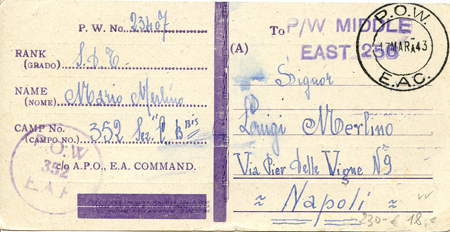 P. W. No. 23407
RANK
(GRADO)
NAME Mario Merlino
(NOME)
CAMP No. 352
(CAMPO NO.)
c/o A.P.O., E.A. COMMAND.
P.O.W.
352
E.A.F
To P/W MIDDLE
(A) EAST 256
P.O.W.
17 MAR 43
E.A.C.
Signor
Luigi Merlino
Via Pier delle Vigne N9
≈ Napoli ≈
230- € 18,-